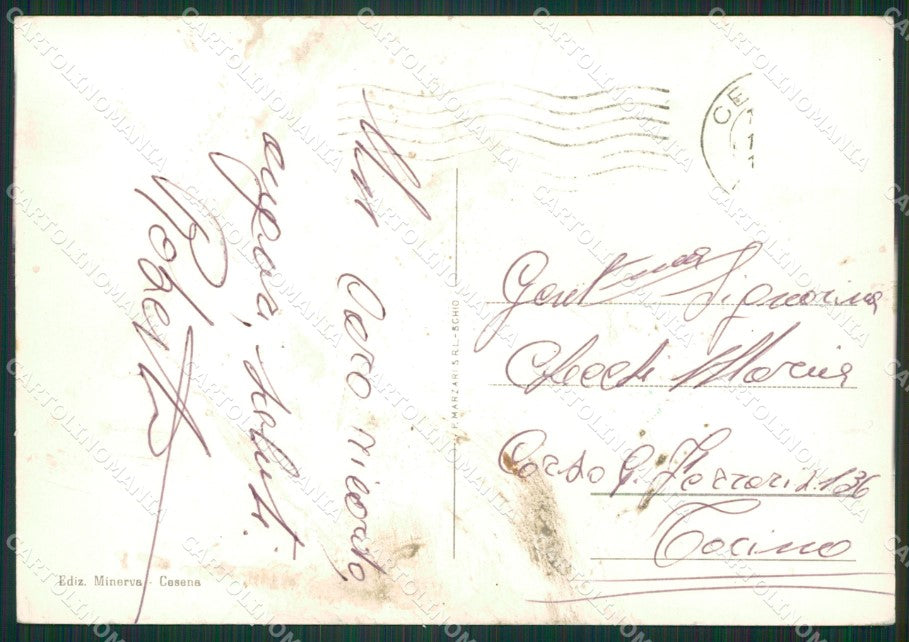 Un Caro ricordo,
augurii, saluti.
Roberto
CE
Gent.ma Signorina
Checchi Maria
Corso G. Ferrari N. 136
Torino
F. MARZARI S.R.L. - SCHIO
Ediz. Minerva - Cesena
CARTOLINOMANIA